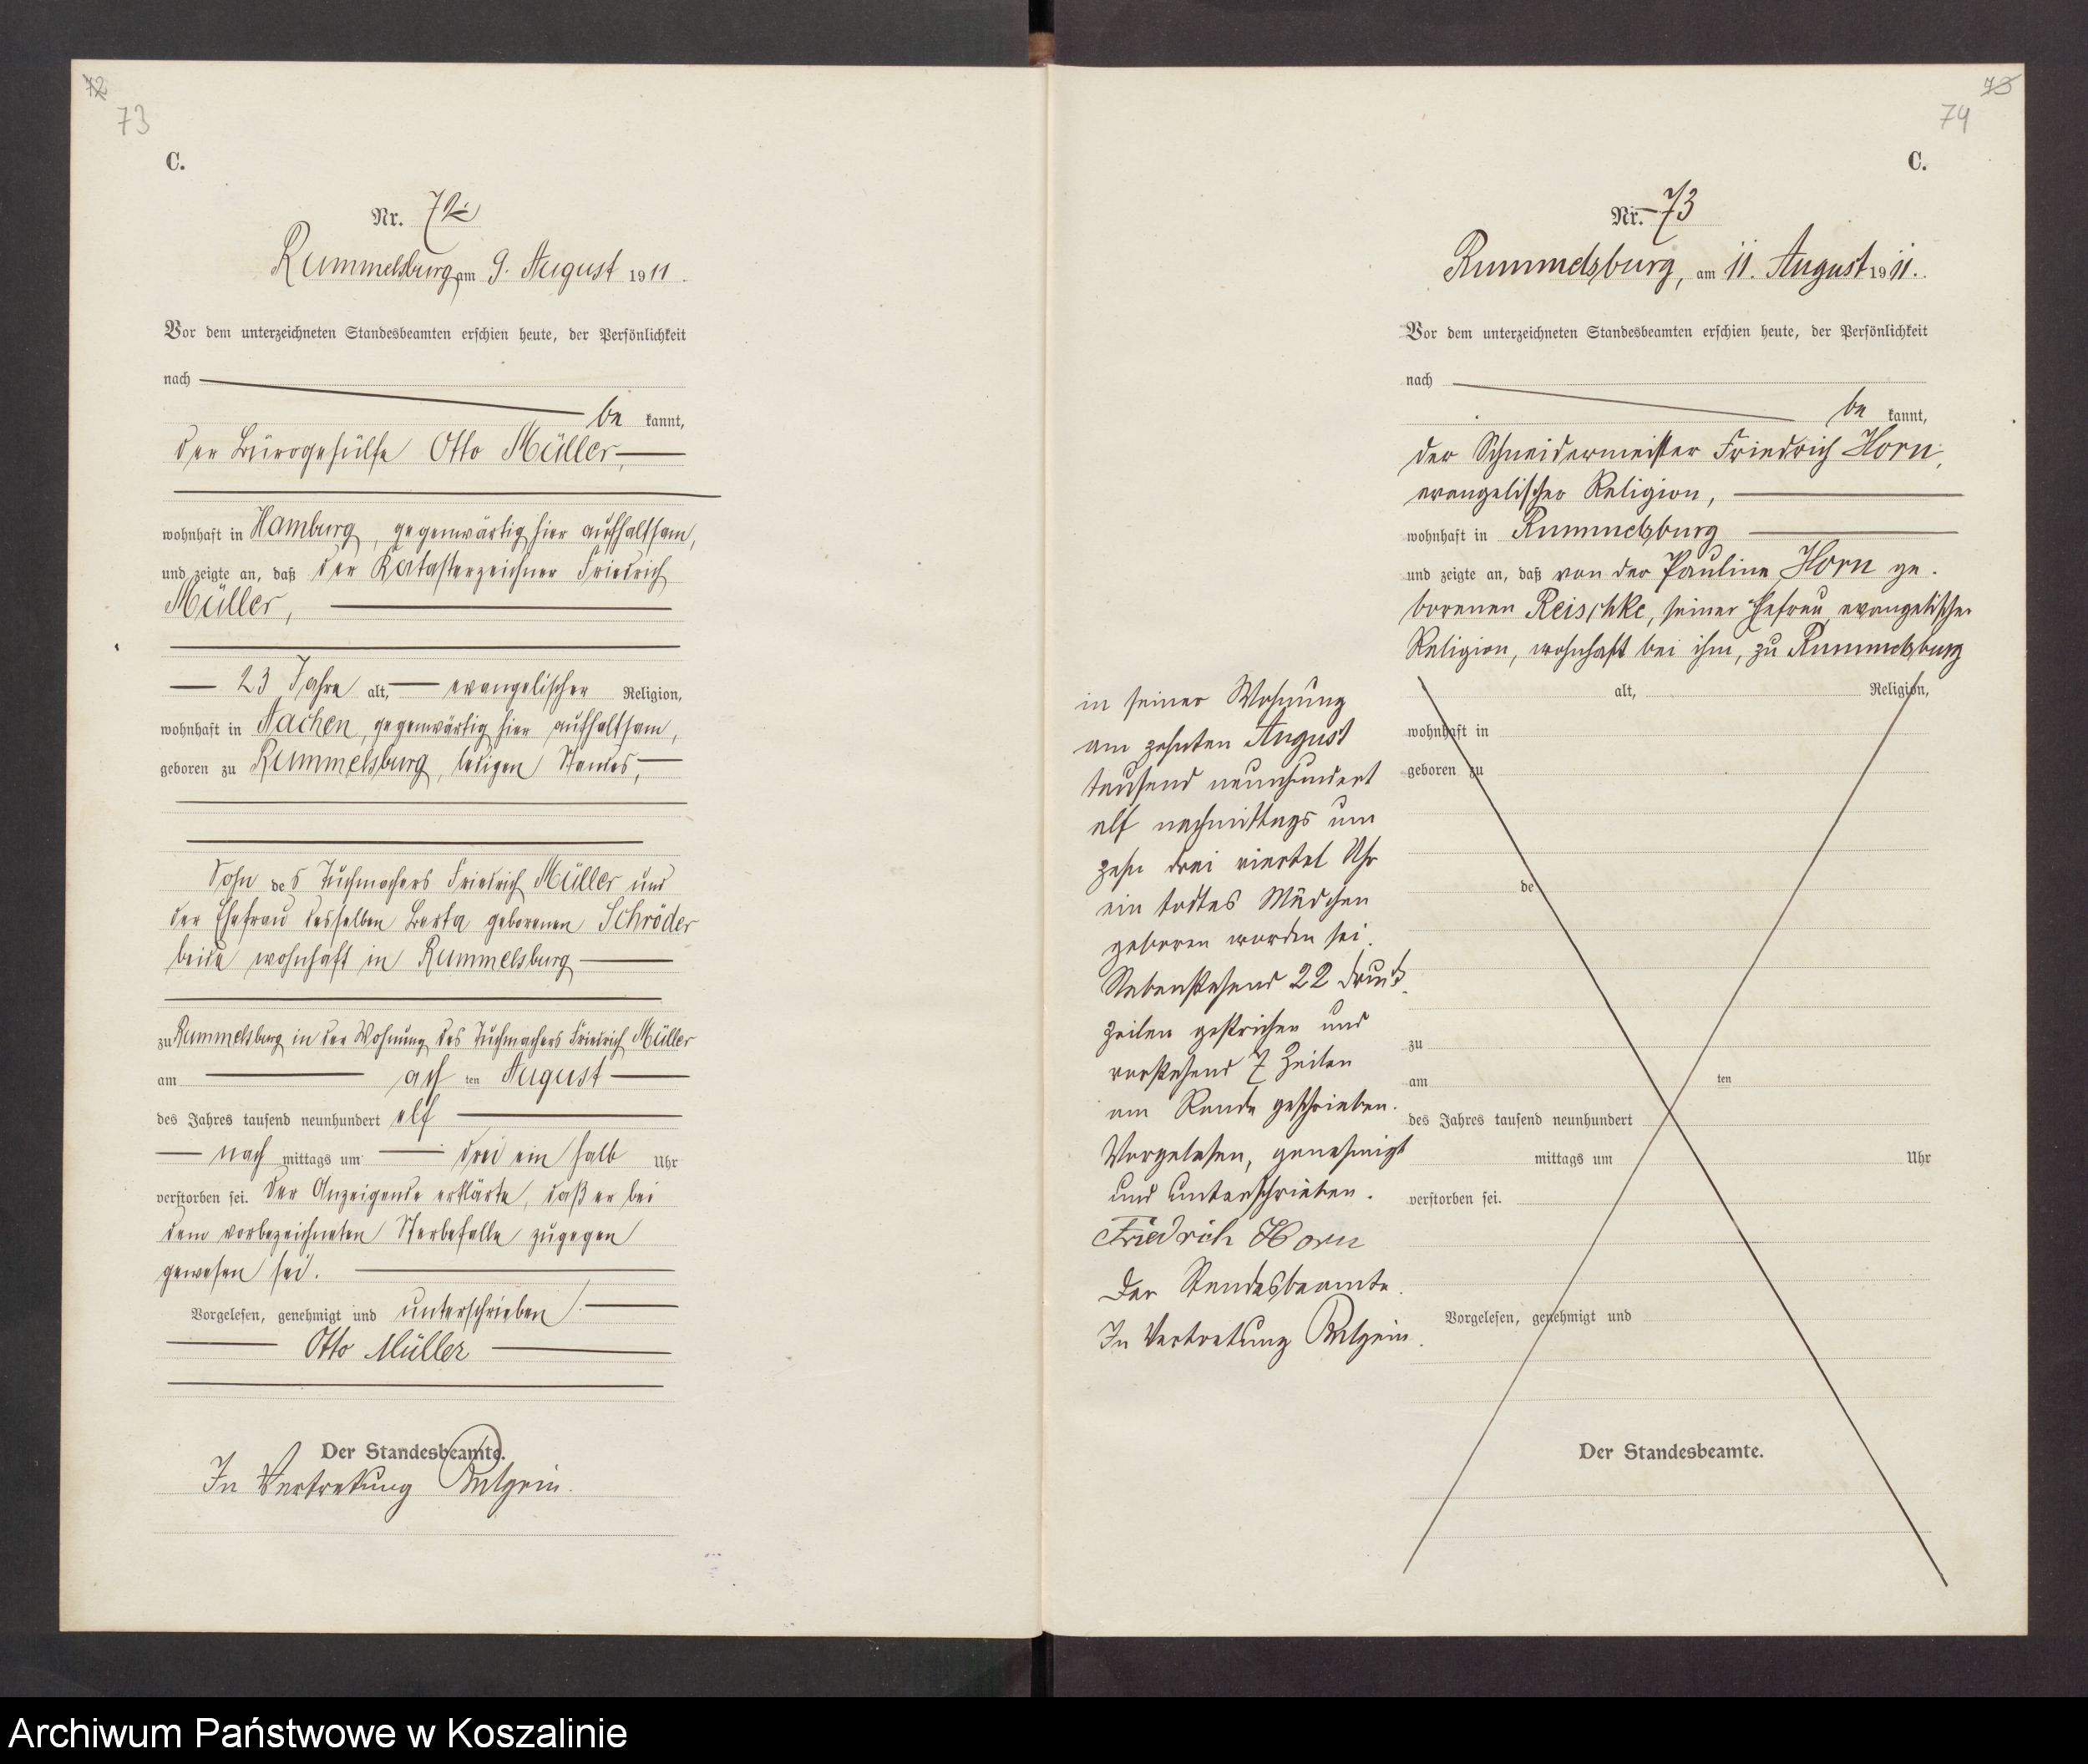 72
73
C.
Nr. 72
Rummelsburg am 9. August 1911.
Vor dem unterzeichneten Standesbeamten erschien heute, der Persönlichkeit
nach
be kannt,
der Bürogehülfe Otto Müller,
wohnhaft in Hamburg, gegenwärtig hier aufhaltsam,
und zeigte an, daß der Katasterzeichner Friedrich
Müller,
23 Jahre alt, evangelischer Religion,
wohnhaft in Aachen, gegenwärtig hier aufhaltsam,
geboren zu Rummelsburg, ledigen Standes,
Sohn des Tuchmachers Friedrich Müller und
der Ehefrau desselben Berta geborenen Schröder
beide wohnhaft in Rummelsburg
zu Rummelsburg in der Wohnung des Tuchmachers Friedrich Müller
am achten August
des Jahres tausend neunhundert elf
nach mittags um drei ein halb Uhr
verstorben sei. Der Anzeigende erklärte, daß er bei
dem vorbezeichneten Sterbefalle zugegen
gewesen sei.
Vorgelesen, genehmigt und unterschrieben.
Otto Müller
Der Standesbeamte.
In Vertretung
73
74
C.
Nr. 73
Rummelsburg, am 11. August 1911.
Vor dem unterzeichneten Standesbeamten erschien heute, der Persönlichkeit
nach
be kannt,
der Schneidermeister Friedrich Horn,
evangelischer Religion,
wohnhaft in Rummelsburg
und zeigte an, daß von der Pauline Horn ge-
borenen Reischke, seiner Ehefrau, evangelischer
Religion, wohnhaft bei ihm, zu Rummelsburg
in seiner Wohnung
am zehnten August
tausend neunhundert
elf nachmittags um
zehn drei viertel Uhr
ein todtes Mädchen
geboren worden sei.
Nebenstehend 22 Druck-
zeilen gestrichen und
vorstehend 7 Zeilen
am Rande geschrieben.
Vorgelesen, genehmigt
und unterschrieben.
Friedrich Horn
Der Standesbeamte.
In Vertretung
alt, Religion,
wohnhaft in
geboren zu
de
zu
am ten
des Jahres tausend neunhundert
mittags um Uhr
verstorben sei.
Vorgelesen, genehmigt und
Der Standesbeamte.
Archiwum Państwowe w Koszalinie